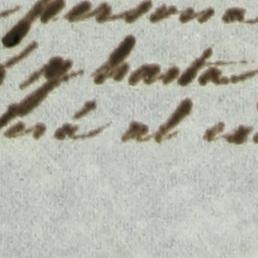 persona
y hasta
erá al